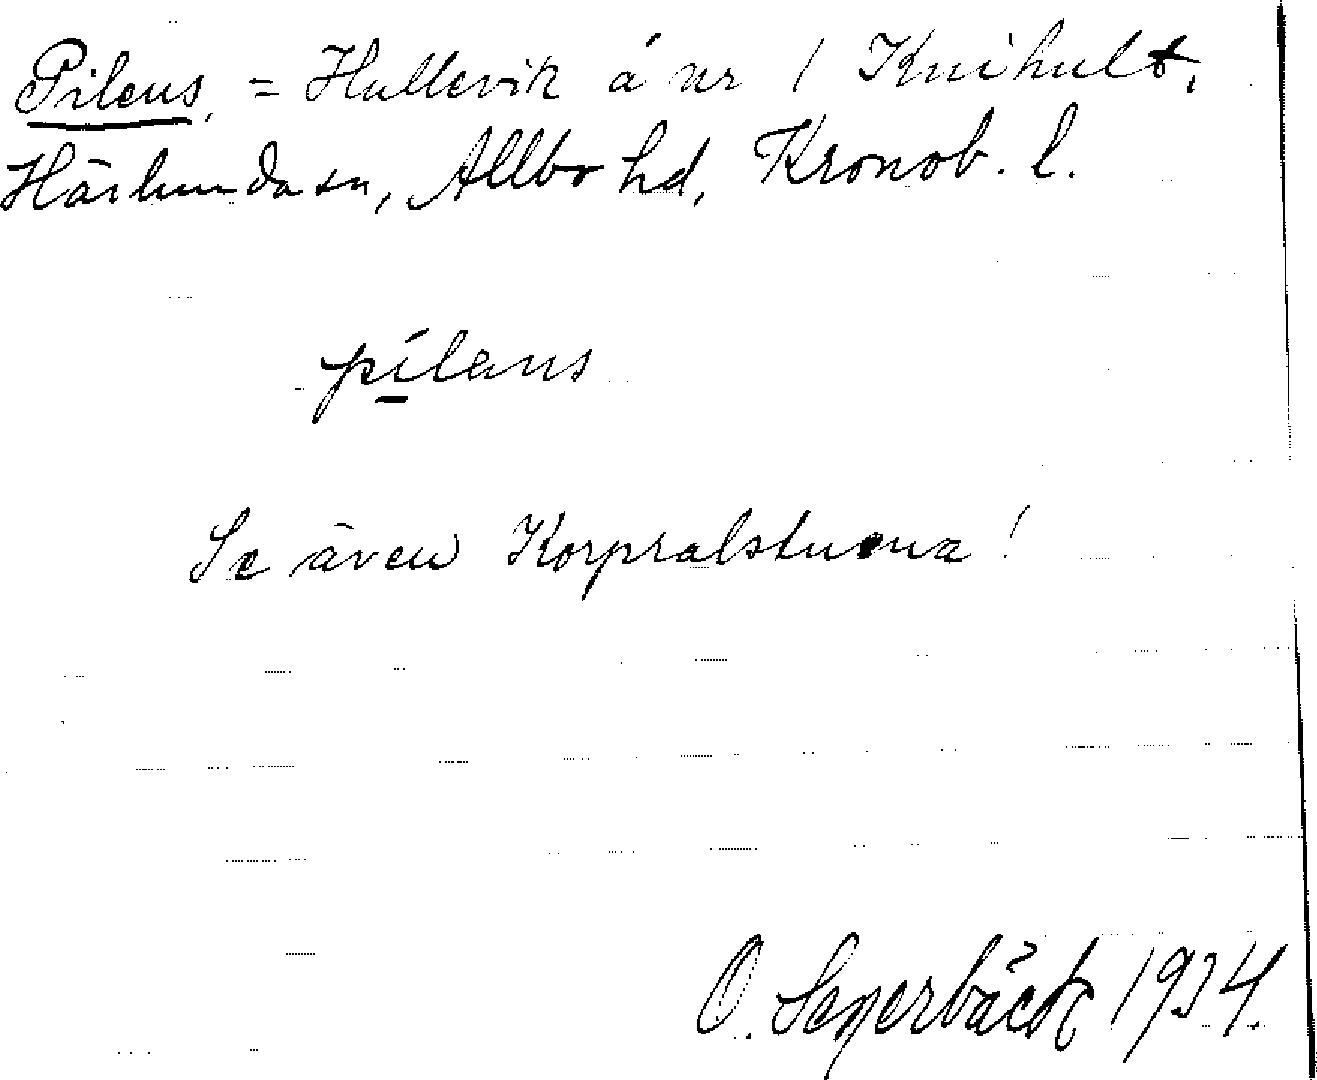 Pilens, = Hallevik å nr 1 Knihult,
Härlunda sn, Allbo hd, Kronob. l.
pílens
Se även Korpralstuena!
O. Segerbäck 1934.